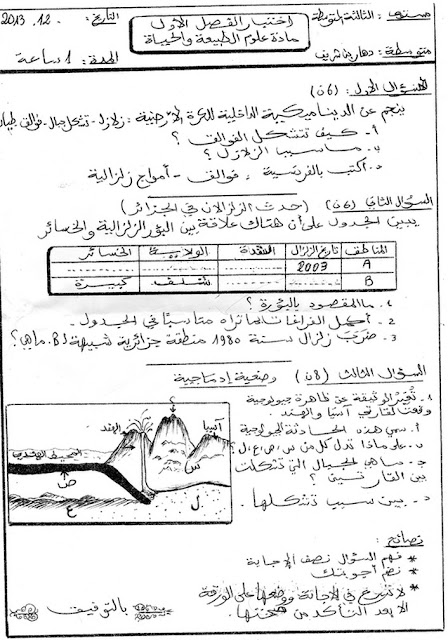 مستوى : الثالثة المتوسطة
اختبار الفصل الأول
التاريخ : .12. 2013
متوسطة : دهار بن شريف
مادة علوم الطبيعة والحياة
المدة : 1 ساعة
السؤال الأول : (6ن)
ينجم عن الديناميكية الداخلية للكرة الأرضية : زلازل - تشكل جبال - فوالق
أ- كيف تتشكل الفوالق ؟
ب. ما سبب الزلازل ؟
د. أكتب بالفرنسية : فوالق - أمواج زلزالية
السؤال الثاني (6ن) (حدث الزلزالان في الجزائر)
يبين الجدول على أن هناك علاقة بين البؤر الزلزالية والخسائر
المناطق
تاريخ الزلزال
الشدة
الولاية
الخسائر
A
2003
B
شلف
كبيرة
1. ما المقصود بالبؤرة ؟
2. أكمل الفراغات بما تراه مناسبًا في الجدول -
3. ضرب زلزال سنة 1980 منطقة جزائرية شبيهة لـ B. ما هي؟
السؤال الثالث (8ن) وضعية إدماجية
تعبر الوثيقة عن ظاهرة جيولوجية
وقعت لقارتي آسيا والهند .
أ. سمي هذه الحادثة الجيولوجية
ب. على ماذا تدل كل من س، ص، ع، ل ؟
ج- ما هي الجبال التي تشكلت
بين القارتين ؟
د- بين سبب تشكلها .
؟
آسيا
الهند
المحيط الهندي
س
ص
ع
ل
نصائح :
* فهم السؤال نصف الإجابة
* نظم أجوبتك
* لا تتسرع في الإجابة ووضعها على الورقة
إلا بعد التأكد من صحتها .
بالتوفيق